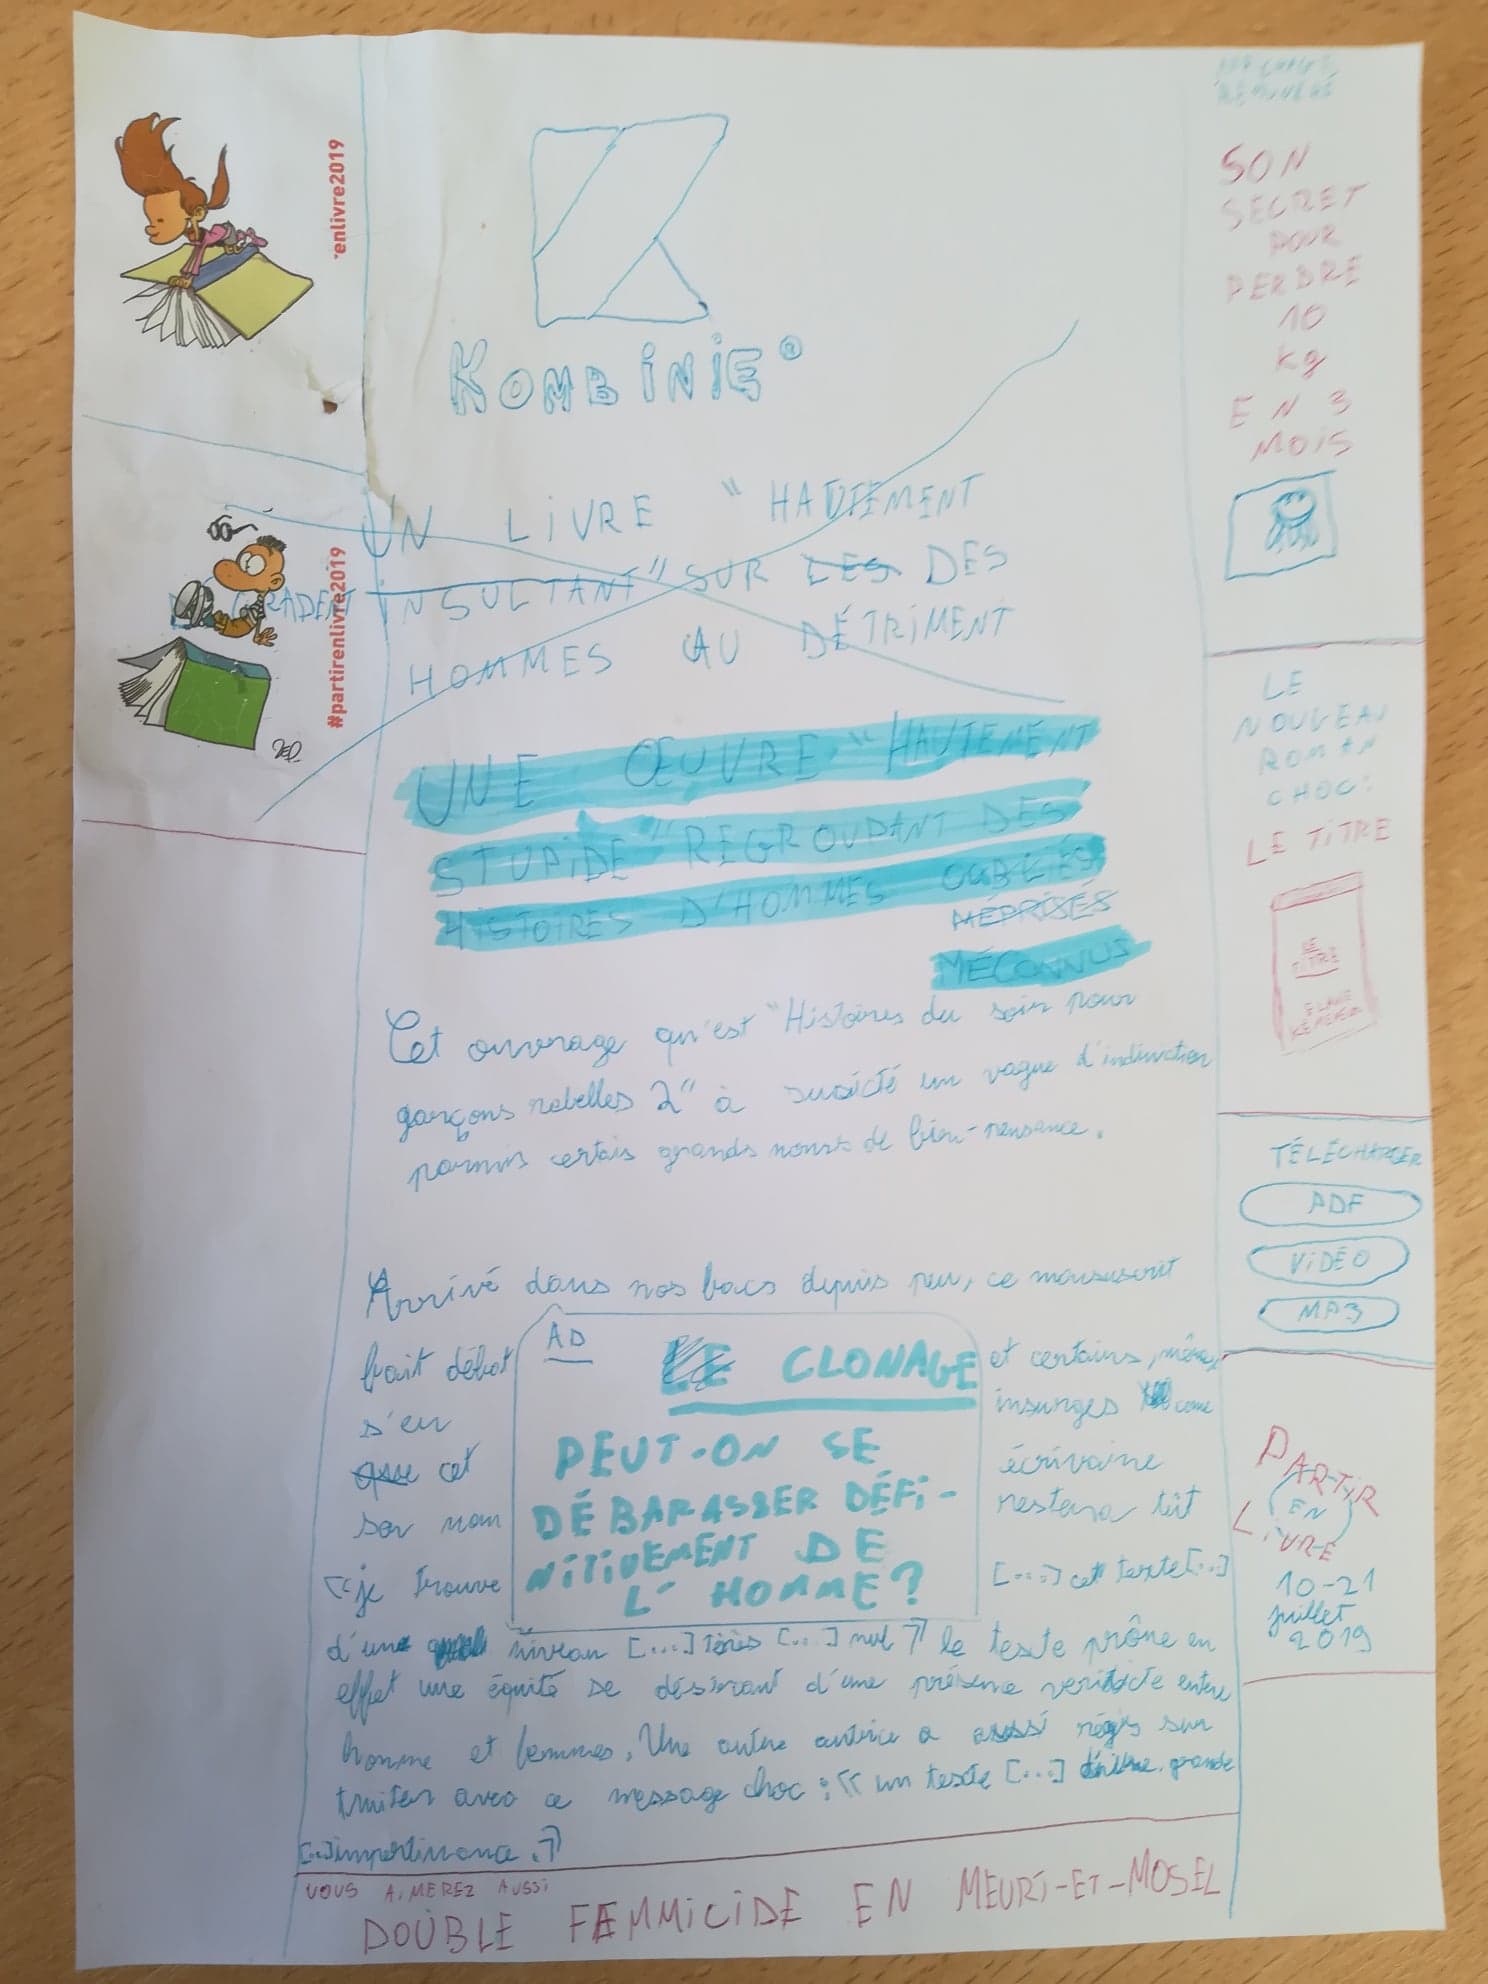 'enlivre2019
#partirenlivre2019
KOMBINIE®
UN LIVRE "HAUTEMENT
INSULTANT" SUR LES DES
HOMMES AU DÉTRIMENT
UNE ŒUVRE "HAUTEMENT
STUPIDE" REGROUPANT DES
HISTOIRES D'HOMMES OUBLIÉS
MÉPRISÉS
MÉCONNUS
Cet ouvrage qu'est "Histoires du soir pour
garçons rebelles 2" à un vague d'indination
parmis certais grands noms de bien-pensance.
Arrivé dans nos bacs depuis peu, ce manuscrit
fait débat et certains, même,
s'en insurges
que cet écrivaine
restera tût
«je trouve [...] cet texte [...]
d'une niveau [...] très [...] nul » le texte prône en
effet une équité se désirant d'une entre
homme et femmes. Une autre autrice a sur
twiter avec ce message choc : « un texte [...] grande
[...] impertinance. »
AD
LE CLONAGE
PEUT-ON SE
DÉBARASSER DÉFI-
NITIVEMENT DE
L'HOMME?
VOUS AIMEREZ AUSSI
DOUBLE FEMMICIDE EN MEURT-ET-MOSEL
SON
SECRET
POUR
PERDRE
10
kg
EN 3
MOIS
LE
NOUVEAU
ROMAN
CHOC:
LE TITRE
LE
TITRE
TÉLÉCHARGER
PDF
VIDÉO
MP3
PARTIR
EN
LIVRE
10-21
juillet
2019